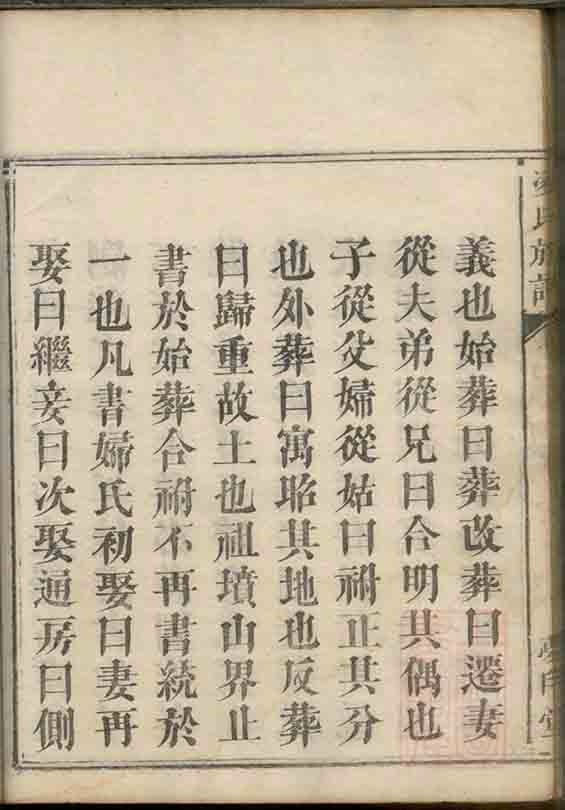 義也始葬曰葬改葬曰遷妻
從夫弟從兄曰合明其偶也
子從父婦從姑曰祔正其分
也外葬曰寓昭其地也反葬
曰歸重故土也祖墳山界止
書於始葬合祔不再書統於
一也凡書婦氏初娶曰妻再
娶曰繼妾曰次娶通房曰側